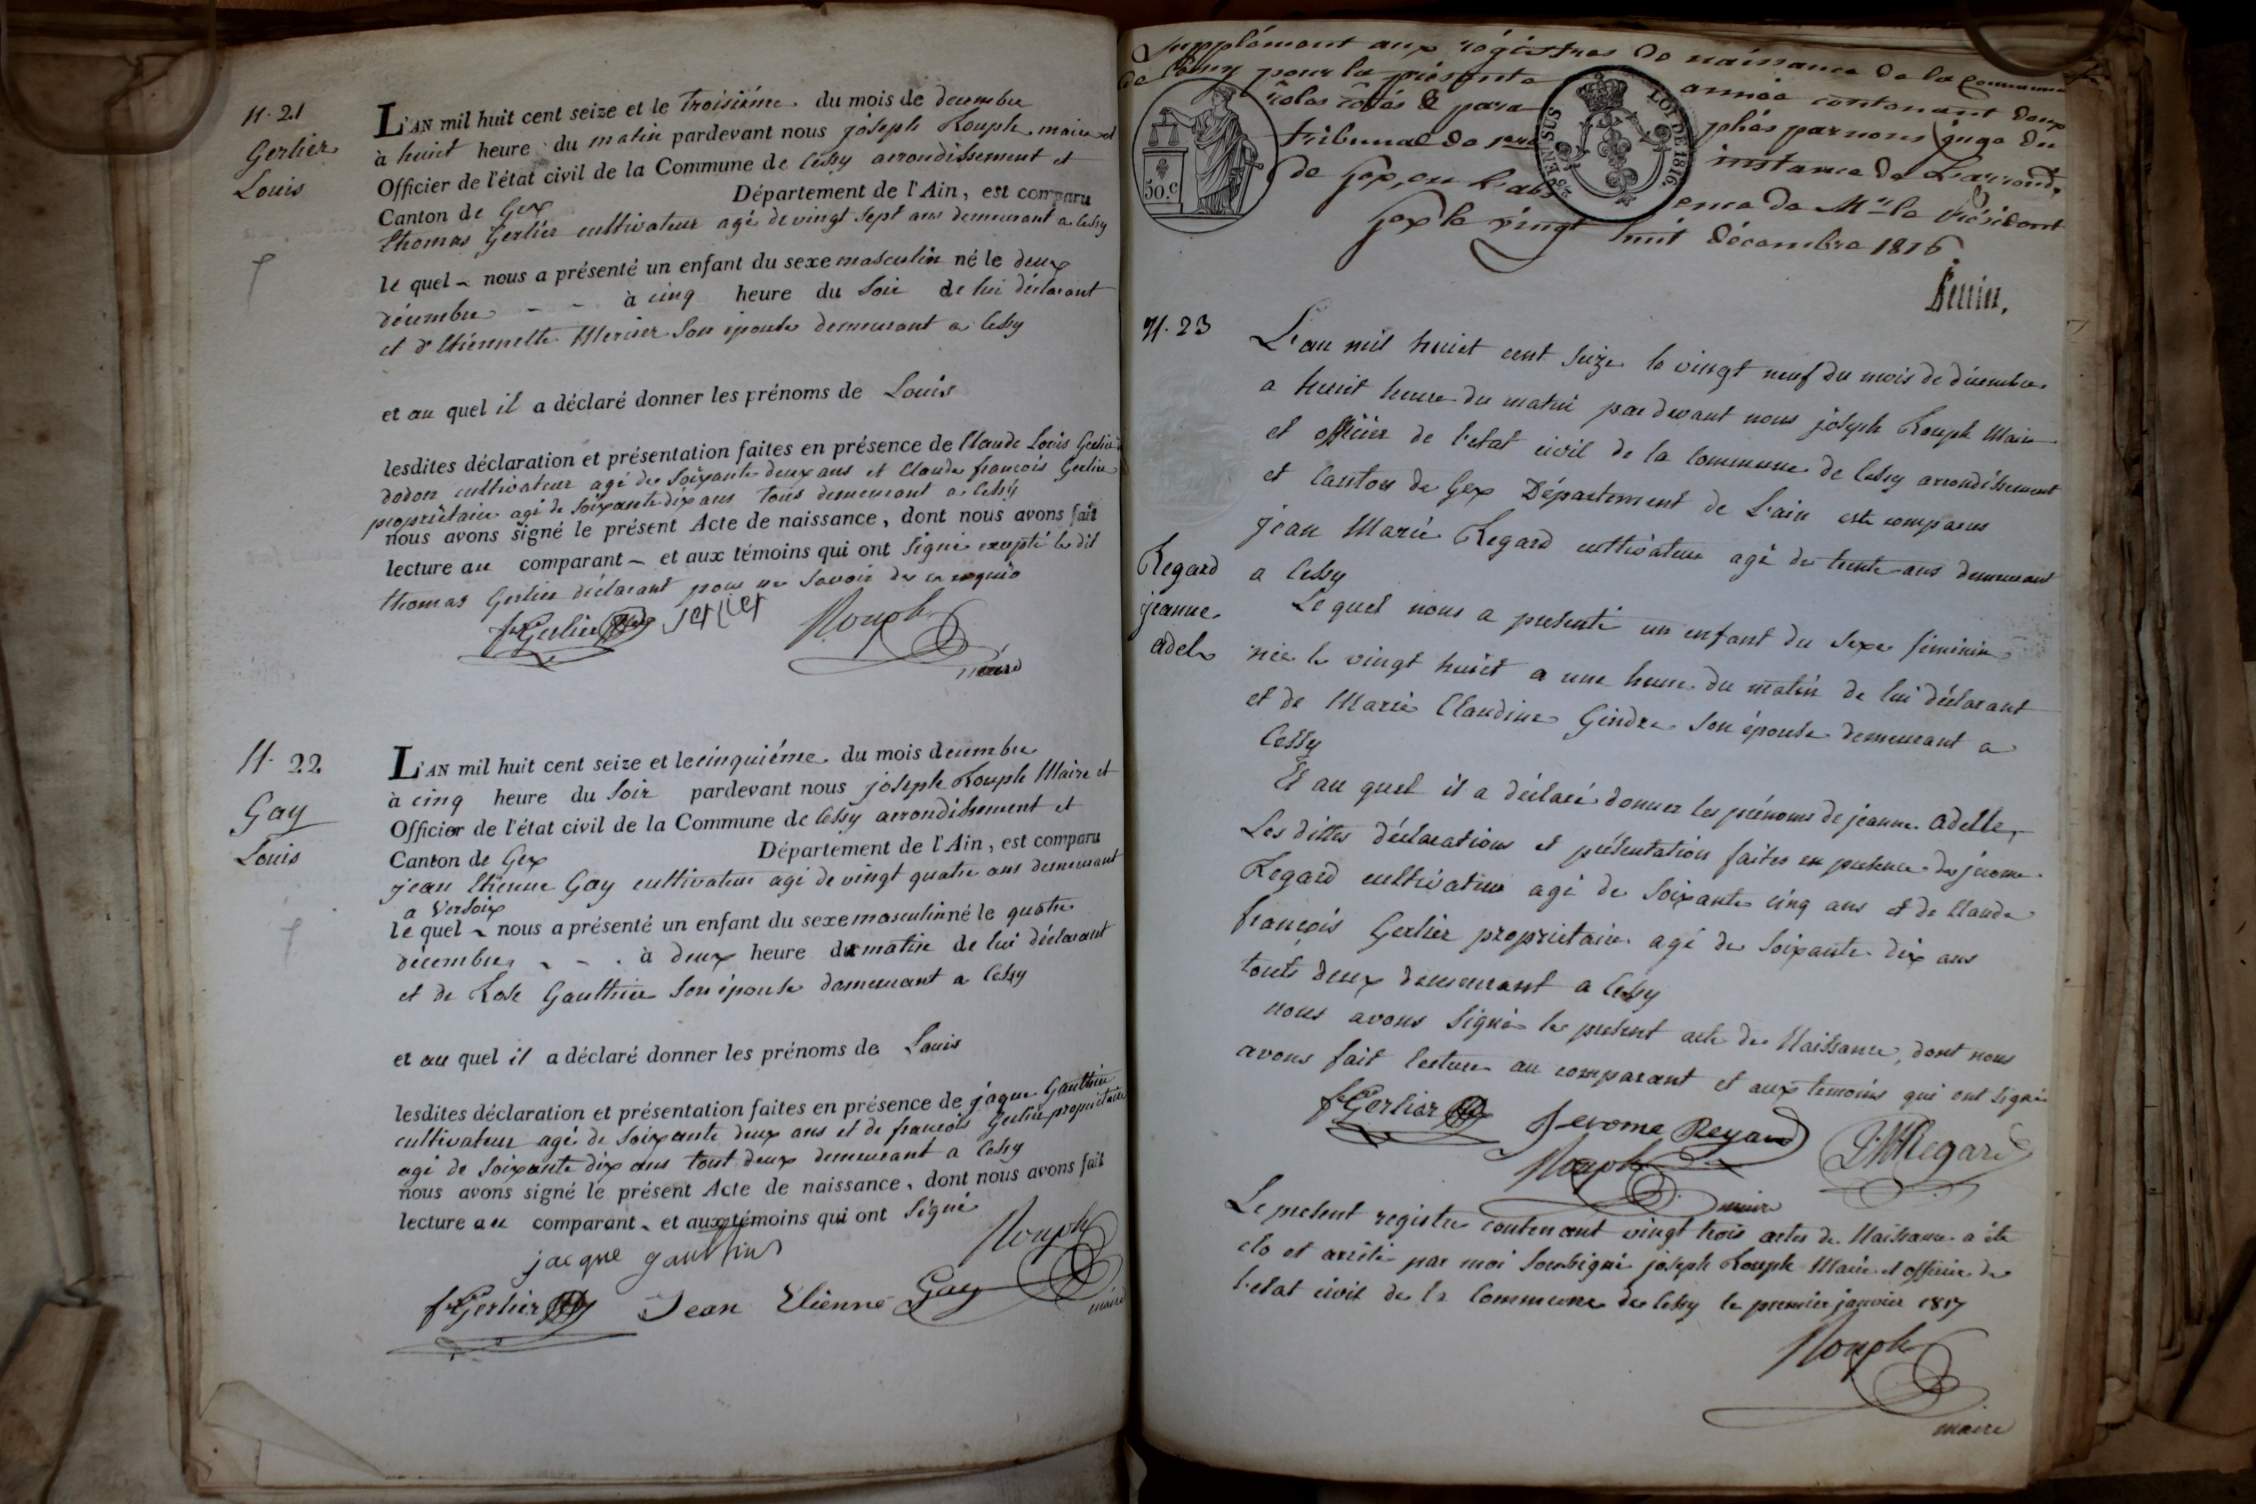 N. 21
Gerlier
Louis
L'AN mil huit cent seize et le troisième du mois de decembre
à huict heure du matin pardevant nous joseph Rouph maire et
Officier de l'état civil de la Commune de Cessy arrondissement et
Canton de Gex Département de l'Ain, est comparu
thomas Gerlier cultivateur agé de vingt sept ans demeurant a Cessy
le quel ~ nous a présenté un enfant du sexe masculin né le deux
décembre - - à cinq heure du soir de lui déclarant
et d'Etiennette Mercier son épouse demeurant a Cessy
et au quel il a déclaré donner les prénoms de Louis
lesdites déclaration et présentation faites en présence de Claude Louis Gerlier
dodon cultivateur agé de soixante deux ans et Claude françois Gerlier
propriétaire agé de soixante dix ans tous demeurant a Cessy
nous avons signé le présent Acte de naissance, dont nous avons fait
lecture au comparant ~ et aux témoins qui ont signé excepté le dit
thomas Gerlier déclarant pour ne savoir de ce requis
f Gerlier Rouph
maire
N. 22
Gay
Louis
L'AN mil huit cent seize et le cinquiéme du mois decembre
à cinq heure du soir pardevant nous joseph Rouph Maire et
Officier de l'état civil de la Commune de Cessy arrondissement et
Canton de Gex Département de l'Ain, est comparu
jean Etienne Gay cultivateur agé de vingt quatre ans demeurant
a Versoix
le quel ~ nous a présenté un enfant du sexe masculin né le quatre
décembre - - . à deux heure du matin de lui déclarant
et de Rose Gauthier son épouse demeurant a Cessy
et au quel il a déclaré donner les prénoms de Louis
lesdites déclaration et présentation faites en présence de jâque Gauthier
cultivateur agé de soixante deux ans et de françois Gerlier propriétaire
agé de soixante dix ans tout deux demeurant a Cessy
nous avons signé le présent Acte de naissance, dont nous avons fait
lecture au comparant ~ et aux témoins qui ont signé
jacque gauthier Rouph
f Gerlier Jean Etienne Gay maire
Supplément aux régistres de naissance de la Commune
de Cessy pour la présente année contenant deux
rôles côtés & paraphés par nous juge du
tribunal de 1ere instance de l'arrondt.
de Gex, en l'absence de Mr. le Président
Gex le vingt huit décembre 1816.
50.c
LOI DE 1816.
25 EN SUS
N. 23
L'an mil huict cent seize le vingt neuf du mois de décembre
a huict heure du matin par devant nous joseph Rouph Maire
et officier de l'etat civil de la Commune de Cessy arrondissement
et Canton de Gex Département de L'ain est comparus
jean Marie Regard cultivateur agé de trente ans demeurant
a Cessy
Regard
jeanne
adele
Le quel nous a présenté un enfant du sexe féminin
née le vingt huict a une heure du matin de lui déclarant
et de Marie Claudine Gindre son épouse demeurant a
Cessy
Et au quel il a déclaré donner les prénoms de jeanne adelle,
Les dittes déclarations et présentation faites en presence de jerome
Regard cultivateur agé de soixante cinq ans et de Claude
françois Gerlier propriétaire agé de soixante dix ans
touts deux demeurant a Cessy
nous avons signé le présent acte de Naissance, dont nous
avons fait lecture au comparant et aux temoins qui ont signé
f Gerlier Jerome Regard JM Regard
Rouph maire
Le present registre contenant vingt trois actes de Naissance a été
clo et arrêté par moi soussigné joseph Rouph Maire et officier de
l'etat civil de la Commune de Cessy le premier janvier 1817
Rouph
maire